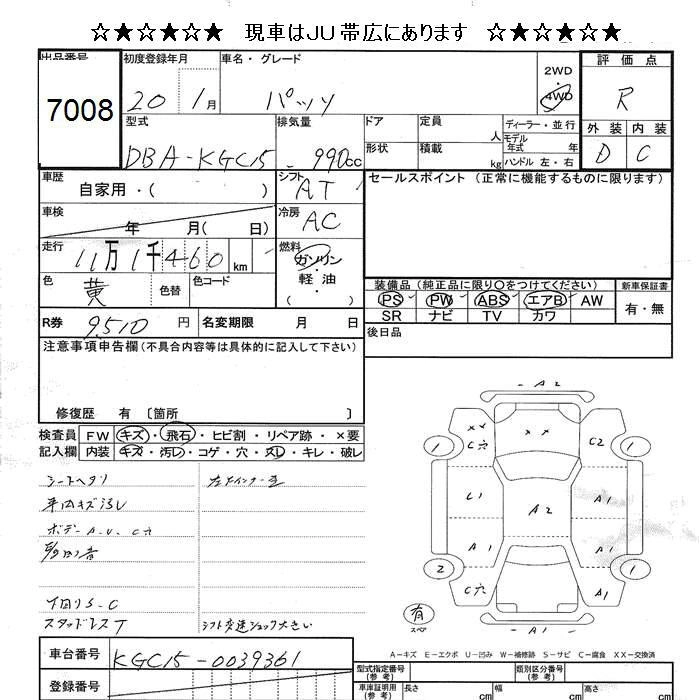 ☆★☆★☆ 現車はJU帯広にあります ☆★☆★☆
出品番号
7008
初度登録年月
20 1月
車名・グレード
パッソ
2WD
4WD
評価点
R
型式
DBA-KGC15
排気量
990cc
ドア
形状
定員
人
積載
kg
ディーラー・並行
モデル年式 年
ハンドル 左・右
外装 内装
D C
車歴
自家用・( )
シフト
AT
セールスポイント (正常に機能するものに限ります)
車検
年 月( 日)
冷房
AC
走行
11万1千460 km
燃料
ガソリン
・
軽・油
色
黄
色替
色コード
装備品 (純正品に限り○をつけてください)
新車保証書
PS PW ABS エアB AW
SR ナビ TV カワ
有・無
R券 9510 円
名変期限 月 日
後日品
注意事項申告欄(不具合内容等は具体的に記入して下さい)
修復歴 有 〔箇所 〕
検査員記入欄
FW キズ・飛石・ヒビ割・リペア跡・×要
内装 キズ・汚レ・コゲ・穴・欠レ・キレ・破レ
シートヘタリ
車内キズ汚レ
ボデーA.U.C穴
下回りS-C
スタッドレスT
シフト変速ショック大きい
A2
C穴
C2
1
1
C1
A1
A2
A1
A1
2
1
C穴
A1
A1
有
スペア
A-キズ E-エクボ U-凹み W-補修跡 S-サビ C-腐食 XX-交換済
車台番号
KGC15-0039361
登録番号
型式指定番号(参考)
類別区分番号(参考)
車庫証明用(参考)
長さ cm
幅 cm
高さ cm